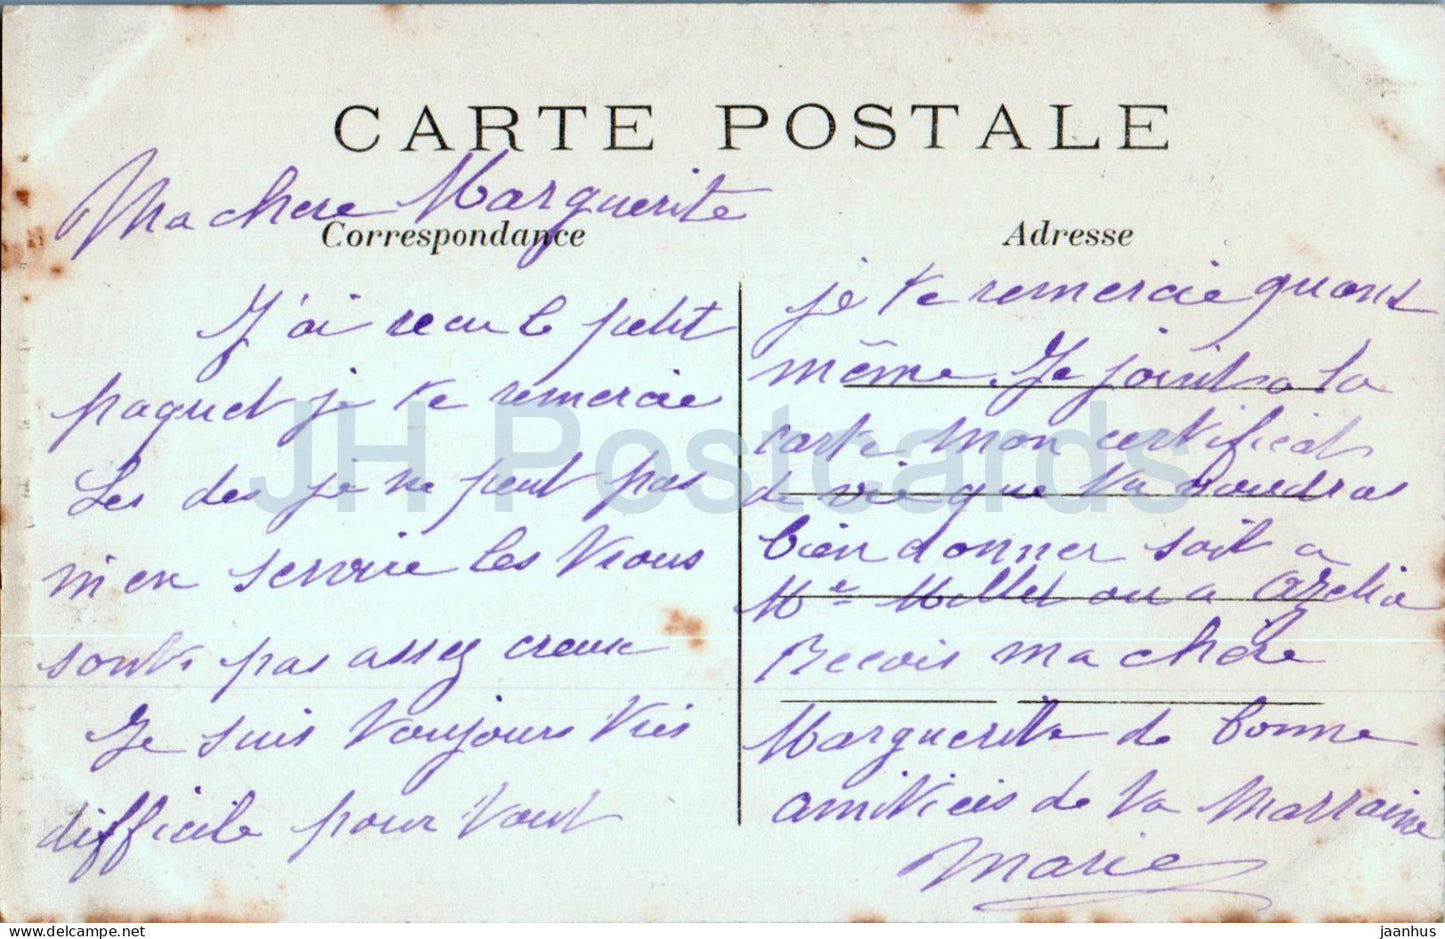 CARTE POSTALE
Ma chere Marguerite
Correspondance
J'ai recu le petit
paquet je te remercie
Les des je ne peut pas
m'en servire les trous
sonts pas assez creux
Je suis toujours très
difficile pour tout
Adresse
je te remercie quant
même Je joint a ta
carte mon certificat
de vie que tu voudras
bien donner soit a
Me Millet ou a Ozelia
Recois ma chère
Marguerite de bonne
amitiées de ta Marraine
Marie
JH Postcards
www.delcampe.net
jaanhus